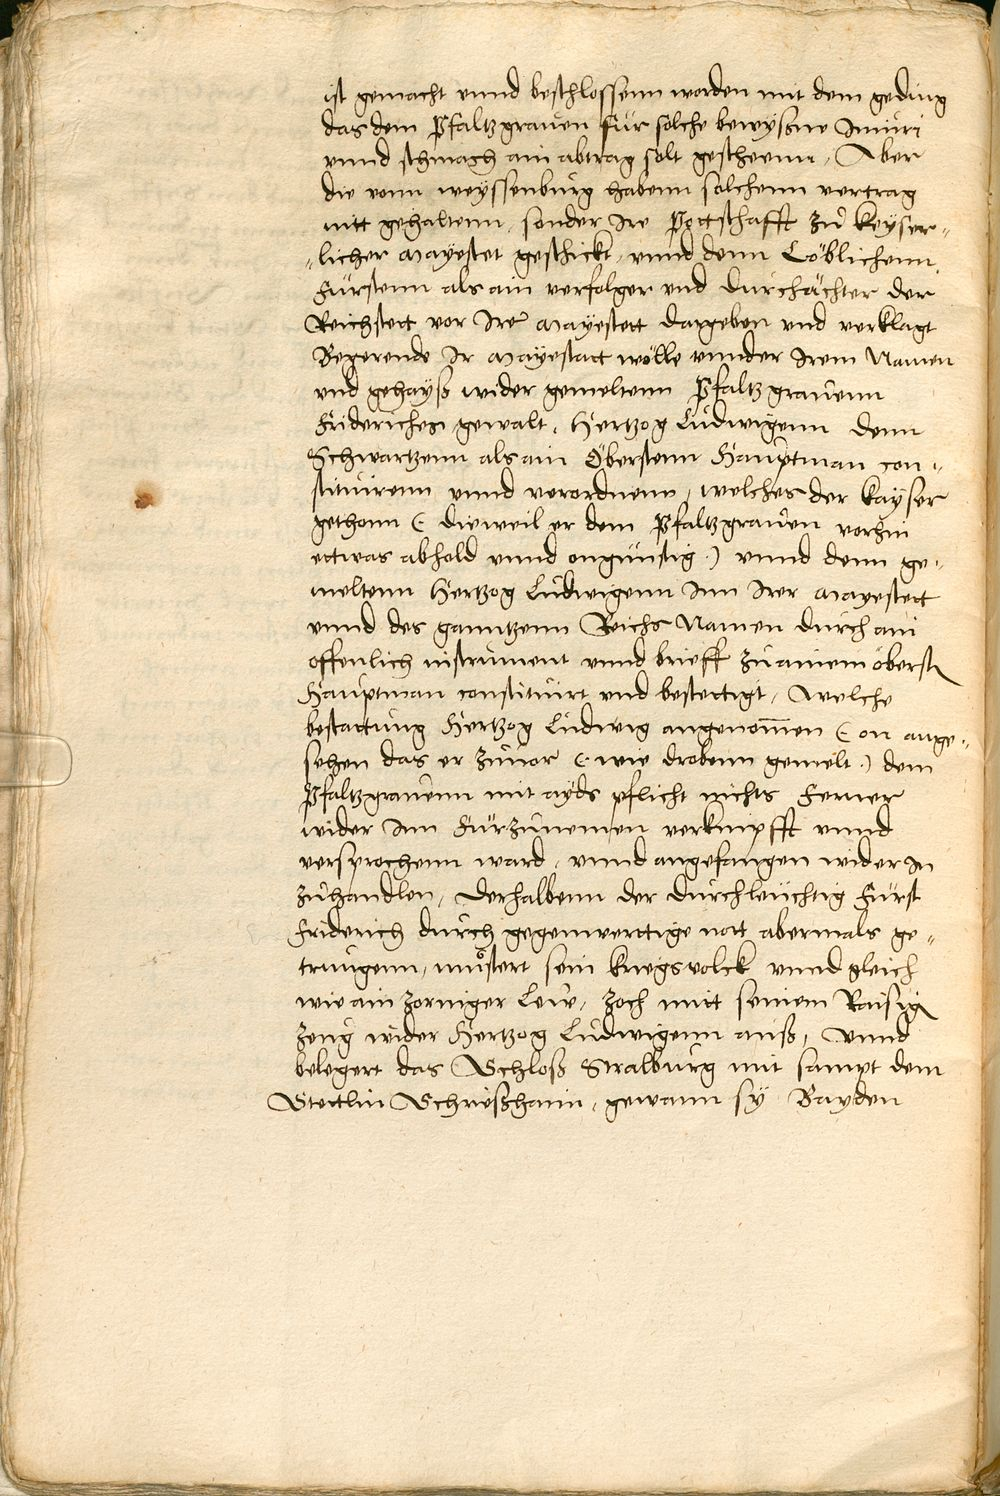 ist gemacht vnnd beschlossenn worden mit dem geding
das dem Pfaltzgrauen für solche bewyßne Iniuri
vnnd schmach ain abtrag solt geschehenn, Aber
die vonn weyssenburg habenn solchenn vertrag
nitt gehaltenn, sonder Ire Pottschafft zů keyser-
licher Mayestet geschickt, vnnd denn Löblichenn
Fürstenn als ain verfolger vnd durchächter der
Reichstett vor Irer Mayestett dargeben vnd verklagt
Begerende Ir Mayestatt wölle vnnder Irem Namen
vnd gehayß wider gemeltenn Pfaltzgrauenn
Friderichen gewalt, Hertzog Ludwigenn denn
Schwartzenn als ain Öberstenn Hauptman con-
stituirenn vnnd verordnenn, welches der kayser
gethonn (: dieweil er dem Pfaltzgrauen vorhin
ettwas abhold vnnd ongünstig :) vnnd denn ge-
meltenn Hertzog Ludwigenn Inn Irer Mayestett
vnnd des ganntzenn Reichs Namen durch ain
offenlich instrument vnnd brieff zu ainem öberstn
Hauptman constituirt vnd bestettigt, Welche
bestattung Hertzog Ludwig angenom̅en (: on ange-
sehen das er zuuor (: wie drobenn gemelt :) dem
Pfaltzgrauenn mit ayds pflicht nichts Ferner
wider Inn Fürzunemen verknipfft vnnd
versprochenn ward, vnnd angefangen wider In
zuhandlen, Derhalbenn der durchleuchtig Fürst
Friderich durch gegenwerttige nott abermals ge-
trungenn, můstert sein kriegsvolck vnnd gleich
wie ain zorniger Leuw, zoch mitt seinem Raisign
zeug wider Hertzog Ludwigenn auß, Vnnd
belegert das Schloß Stralburg mit sampt dem
Stettlin Schrießhaim, gewann sy Bayden